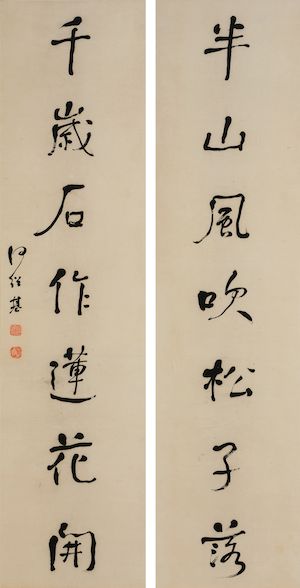 半山風吹松子落
千歲石作蓮花開
何紹基